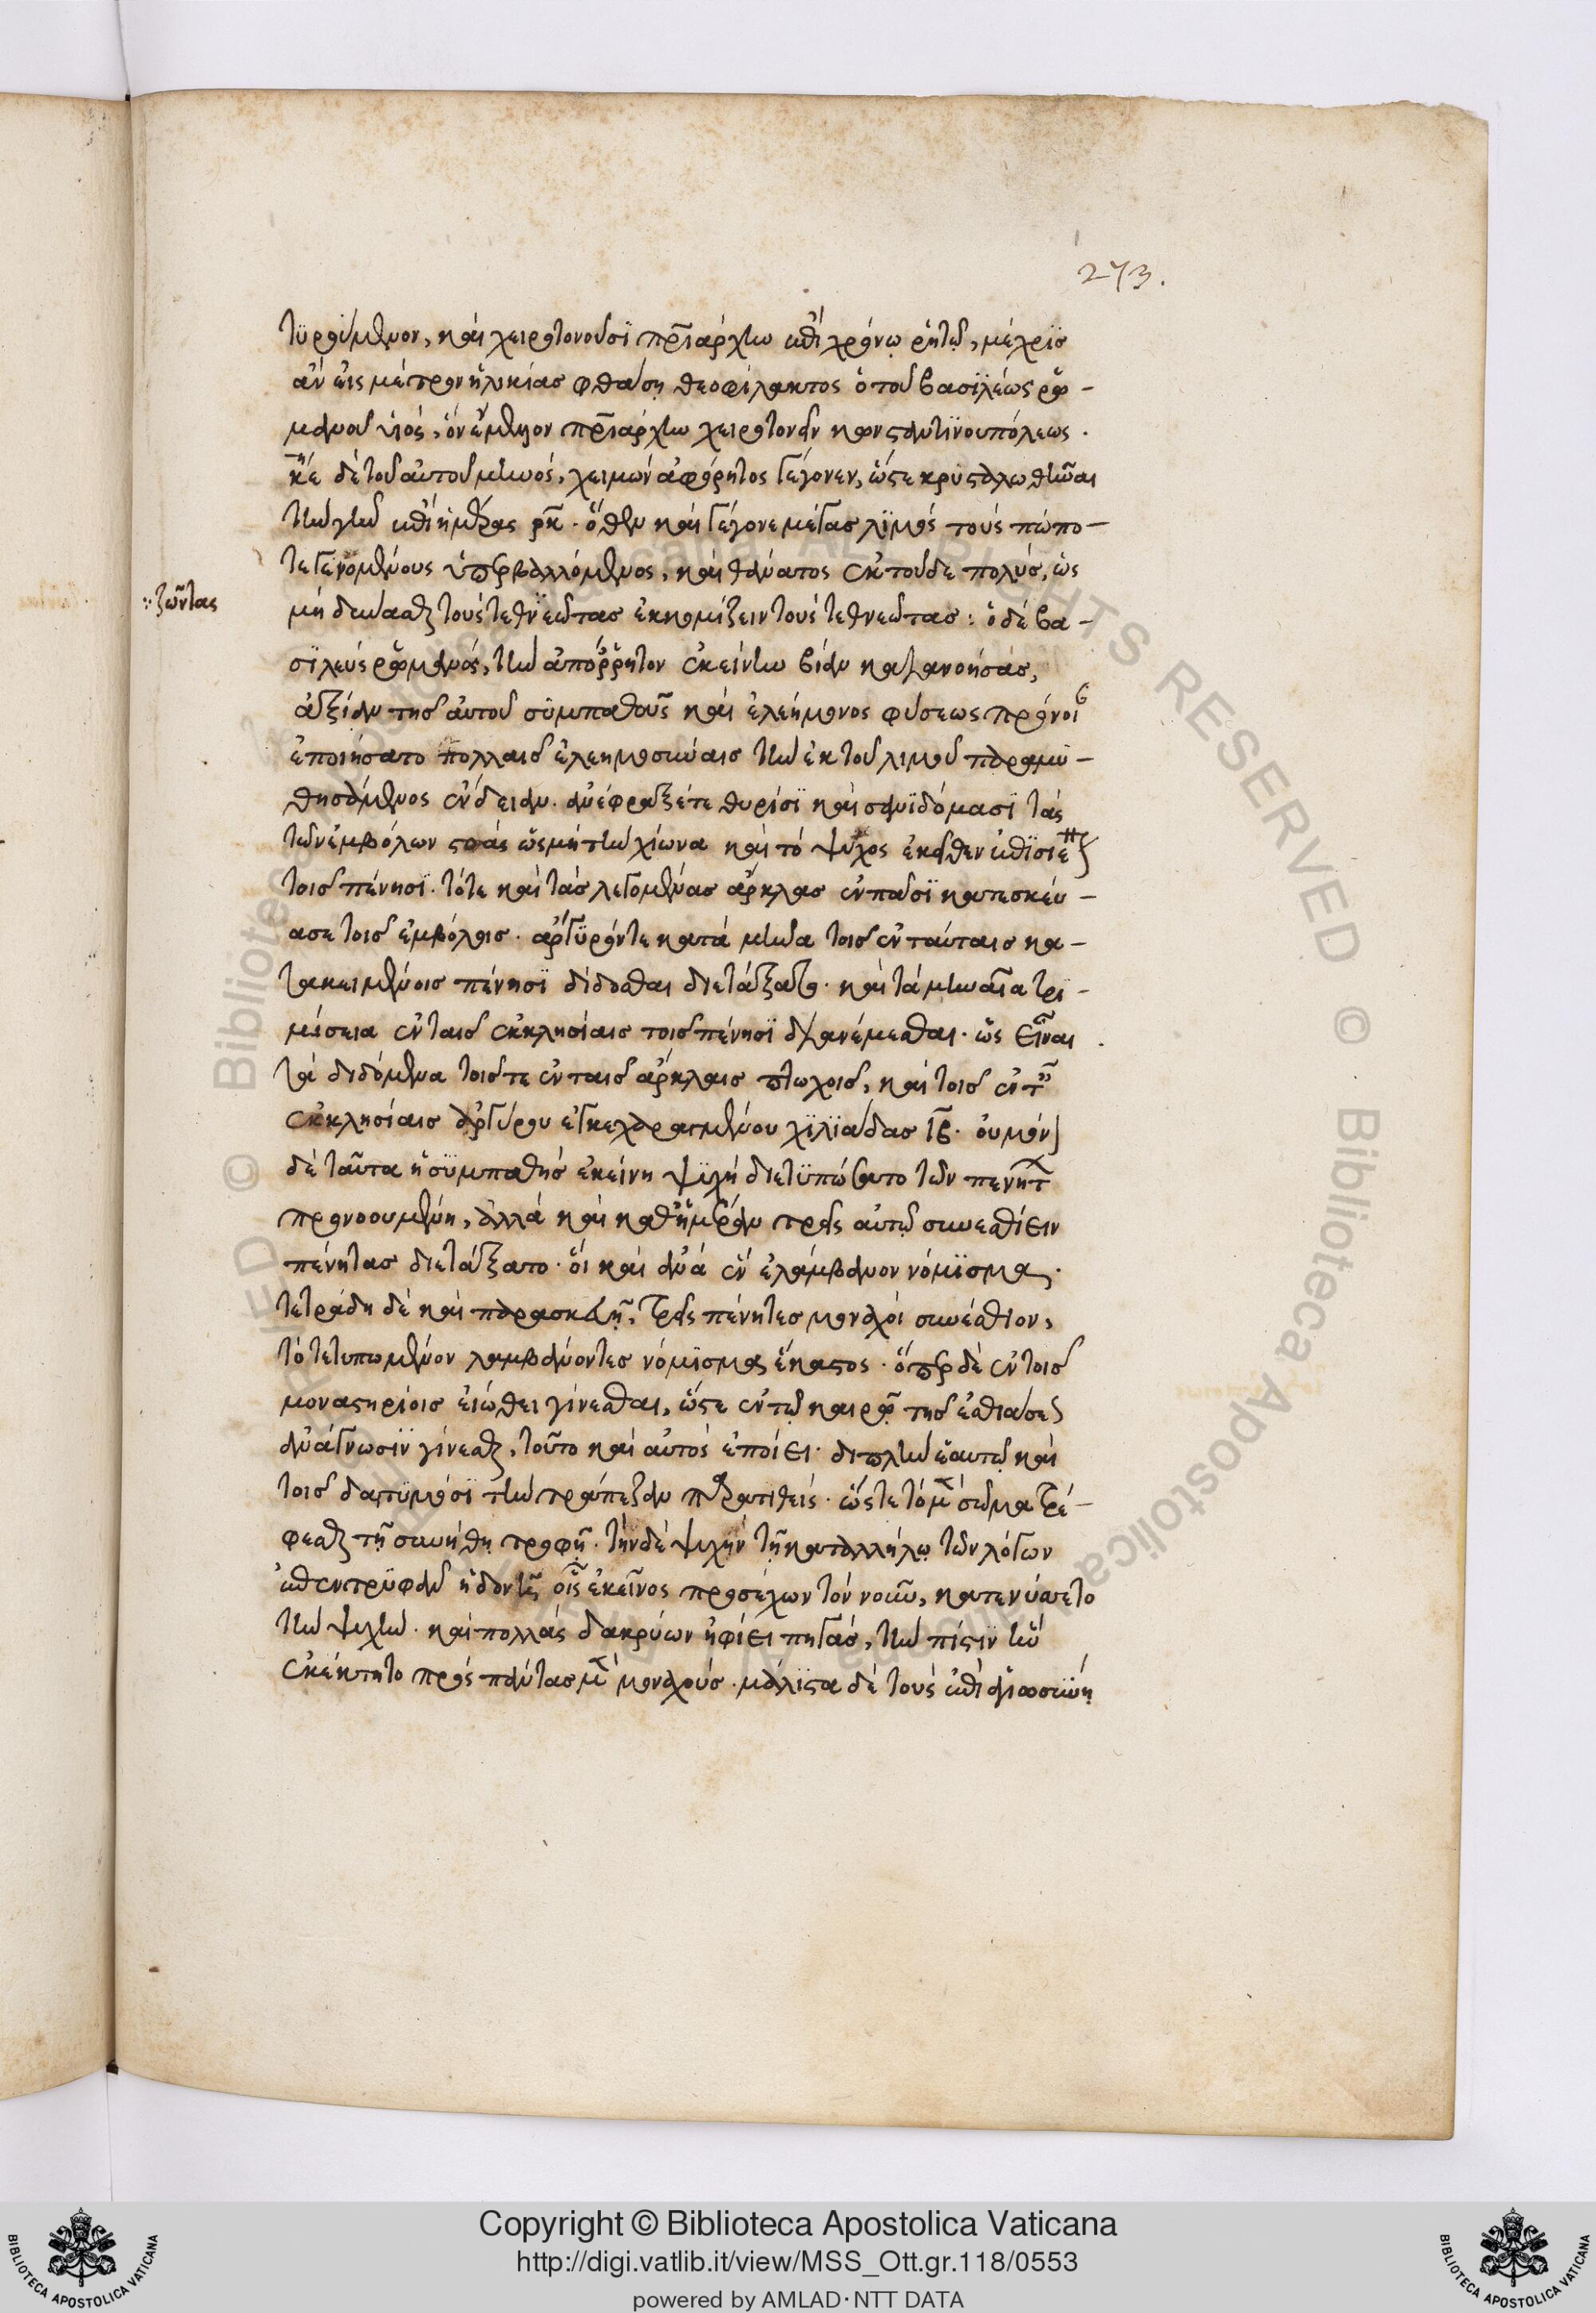 273.
τυρούμενον, καὶ χειροτονοῦσι πριάρχην ἐπὶ χρόνῳ ῥητῷ, μέχρις
ἂν εἰς μέτρον ἡλικίας φθάσῃ θεοφύλακτος ὁ τοῦ βασιλέως ῥω-
μανοῦ υἱός, ὃν ἔμελλον πριάρχην χειροτονεῖν κωνσταντινουπόλεως.
κέ δὲ τοῦ αὐτοῦ μηνός, χειμὼν ἀφόρητος γέγονεν, ὥστε κρυσταλωθῆναι
τὴν γῆν ἐπὶ ἡμέρας ρκ. ὅθεν καὶ γέγονε μέγας λιμός τοὺς πώπο-
τε γενομένους ὑπερβαλλόμενος, καὶ θάνατος ἐκ τοῦδε πολύς, ὡς
ζῶντας
μὴ δύνασθαι τοὺς τεθνεῶτας ἐκκομίζειν τοὺς τεθνεῶτας: ὁ δὲ βα-
σιλεὺς ῥωμανός, τὴν ἀπόρρητον ἐκείνην βίαν κατανοήσας,
ἀξίαν τῆς αὐτοῦ συμπαθοῦς καὶ ἐλεήμονος φύσεως πρόνοιαν
ἐποιήσατο πολλαῖς ἐλεημοσύναις τὴν ἐκ τοῦ λιμοῦ παραμυ-
θησάμενος ἔνδειαν. ἀνέφραξέ τε θυρίσι καὶ σανιδόμασι τὰς
τῶν ἐμβόλων στοὰς ὡς μὴ τὴν χίονα καὶ τὸ ψῦχος ἐκεῖθεν ἐπισιέναι
τοῖς πένησι. τότε καὶ τὰς λεγομένας ἄρκλας ἐν πᾶσι κατεσκεύ-
ασε τοῖς ἐμβόλοις. ἀργύρόν τε κατὰ μῆνα τοῖς ἐν ταύταις κα-
τακειμένοις πένησι δίδοσθαι διετάξατο. καὶ τὰ μηναῖα τρι-
μίσεια ἐν ταῖς ἐκκλησίαις τοῖς πένησι διανέμεσθαι. ὡς εἶναι
τὰ διδόμενα τοῖς τε ἐν ταῖς ἄρκλαις πτωχοῖς, καὶ τοῖς ἐν τ
ἐκκλησίαις ἀργύρου ἐγκεχαραγμένου χιλιάδας ιβ. οὐ μόν
δὲ ταῦτα ἡ συμπαθὴς ἐκείνη ψυχὴ διετυπώσατο τῶν πενήτ
προνοουμένη, ἀλλὰ καὶ καθἡμέραν τρεῖς αὐτῷ συνεσθίειν
πένητας διετάξατο. οἳ καὶ ἀνὰ ἓν ἐλάμβανον νόμισμα.
τετράδη δὲ καὶ παρασκευῇ, τρεῖς πένητες μοναχοὶ συνέσθιον,
τὸ τετυπωμένον λαμβάνοντες νόμισμα ἕκαστος. ὅπερ δὲ ἐν τοῖς
μοναστηρίοις εἰώθει γίνεσθαι, ὥστε ἐν τῷ καιρῷ τῆς ἑστιάσεως
ἀνάγνωσιν γίνεσθαι, τοῦτο καὶ αὐτὸς ἐποίει. διπλῆν ἑαυτῷ καὶ
τοῖς δαιτυμόσι τὴν τράπεζαν παρατιθείς. ὥστε τὸ μὲν σῶμα τρέ-
φεσθαι τῇ συνήθῃ τροφῇ. τὴν δὲ ψυχὴν τῇ καταλλήλῳ τῶν λόγων
ἐπεντρυφᾶν ἡδονῇ οἷς ἐκεῖνος προσέχων τὸν νοῦν, κατενύσετο
τὴν ψυχήν. καὶ πολλὰς δακρύων ἠφίει πηγάς, τὴν πίστιν ἣν
ἐκέκτητο πρὸς πάντας μὲν μοναχούς. μάλιστα δὲ τοὺς ἐπὶ ἁγιωσύνῃ
Copyright © Biblioteca Apostolica Vaticana
http://digi.vatlib.it/view/MSS_Ott.gr.118/0553
powered by AMLAD·NTT DATA